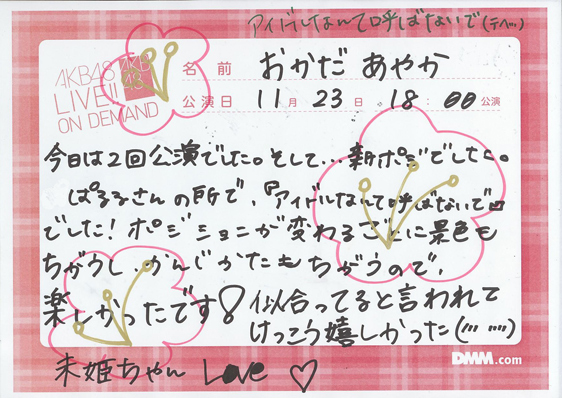 アイドルなんて呼ばないで(テヘッ)
AKB48
LIVE!!
ON DEMAND
AKB
48
名前 おかだ あやか
公演日 11月23日 18:00公演
今日は2回公演でした。そして…新ポジでした。
ぱるるさんの所で、『アイドルなんて呼ばないで』
でした！ポジションが変わるごとに景色も
ちがうし、かんじかたもちがうので、
楽しかったです！似合ってると言われて
けっこう嬉しかった(‥ ‥)
未姫ちゃん Love ♡
DMM.com